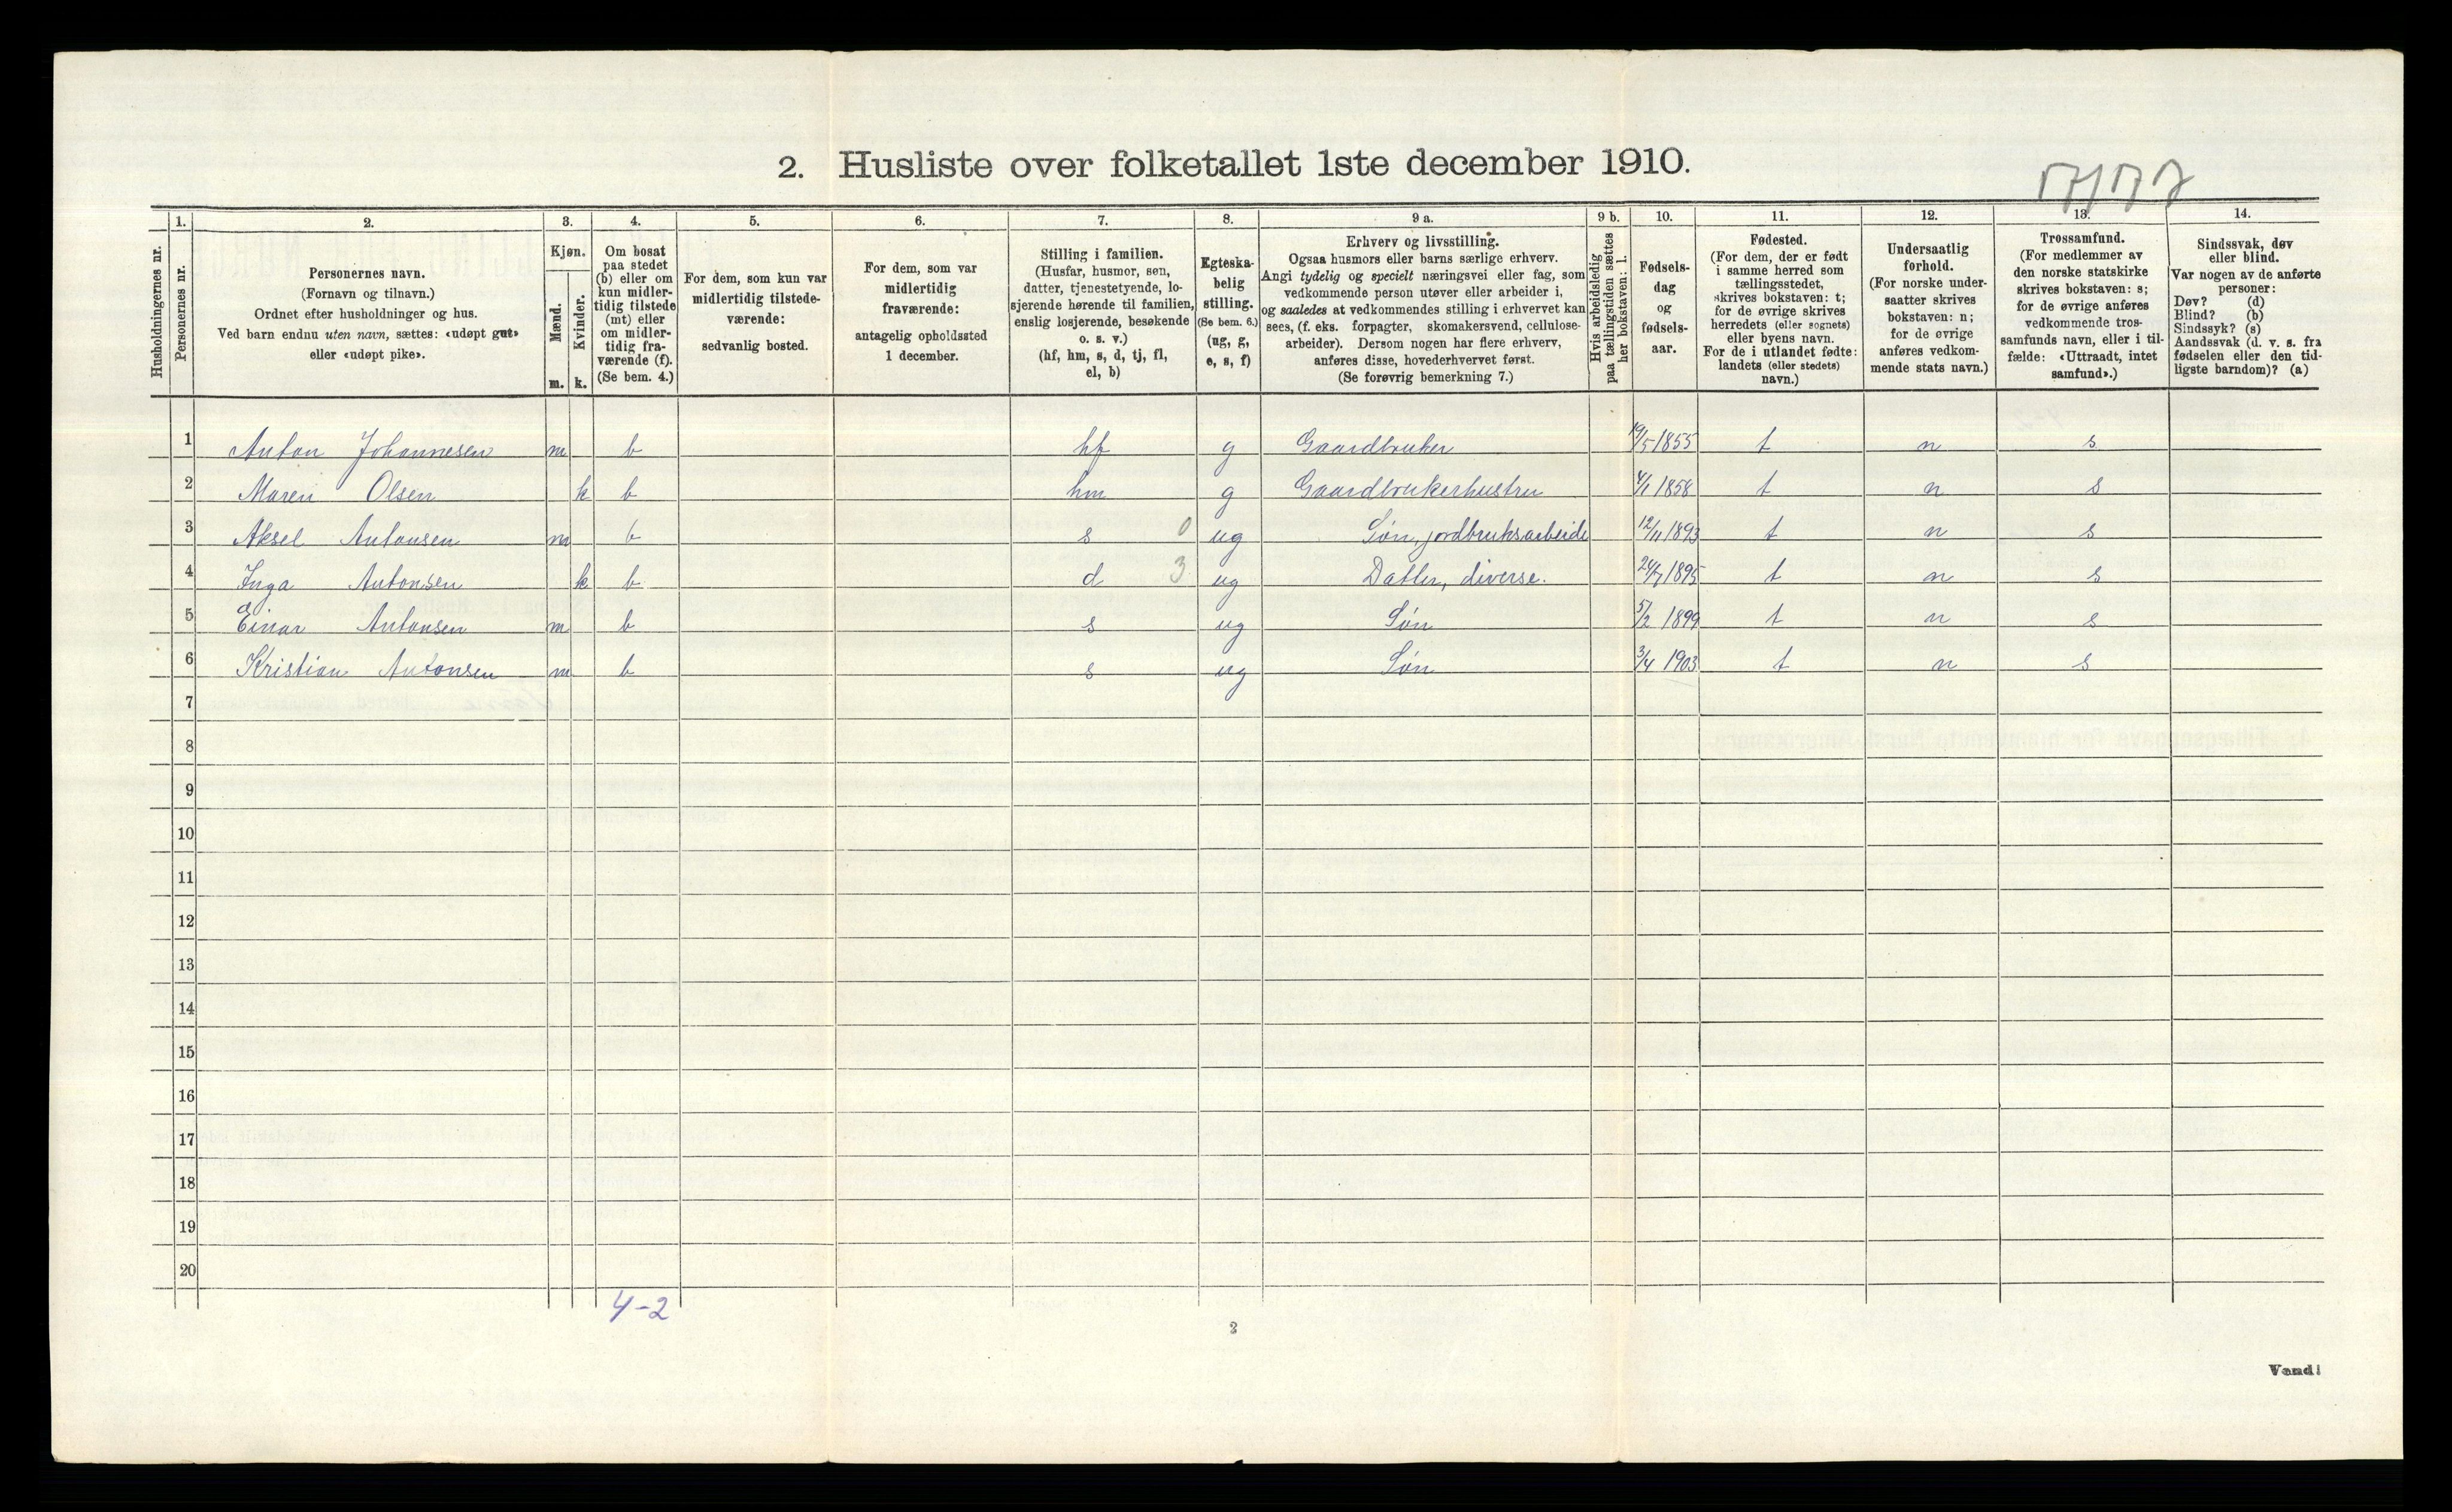 2. Husliste over folketallet 1ste december 1910.
1. 2. 3. 4. 5. 6. 7. 8. 9 a. 9 b. 10. 11. 12. 13. 14.
Husholdningernes nr.
Personernes nr.
Personernes navn.
(Fornavn og tilnavn.)
Ordnet efter husholdninger og hus.
Ved barn endnu uten navn, sættes: «udøpt gut»
eller «udøpt pike».
Kjøn.
Mænd.
m.
Kvinder.
k.
Om bosat
paa stedet
(b) eller om
kun midler-
tidig tilstede
(mt) eller
om midler-
tidig fra-
værende (f).
(Se bem. 4.)
For dem, som kun var
midlertidig tilstede-
værende:
sedvanlig bosted.
For dem, som var
midlertidig
fraværende:
antagelig opholdssted
1 december.
Stilling i familien.
(Husfar, husmor, søn,
datter, tjenestetyende, lo-
sjerende hørende til familien,
enslig losjerende, besøkende
o. s. v.)
(hf, hm, s, d, tj, fl,
el, b)
Egteska-
belig
stilling.
(Se bem. 6.)
(ug, g,
e, s, f)
Erhverv og livsstilling.
Ogsaa husmors eller barns særlige erhverv.
Angi tydelig og specielt næringsvei eller fag, som
vedkommende person utøver eller arbeider i,
og saaledes at vedkommendes stilling i erhvervet kan
sees, (f. eks. forpagter, skomakersvend, cellulose-
arbeider). Dersom nogen har flere erhverv,
anføres disse, hovederhvervet først.
(Se forøvrig bemerkning 7.)
Hvis arbeidsledig
paa tællingstiden sættes
her bokstaven: l.
Fødsels-
dag
og
fødsels-
aar.
Fødested.
(For dem, der er født
i samme herred som
tællingsstedet,
skrives bokstaven: t;
for de øvrige skrives
herredets (eller sognets)
eller byens navn.
For de i utlandet fødte:
landets (eller stedets)
navn.)
Undersaatlig
forhold.
(For norske under-
saatter skrives
bokstaven: n;
for de øvrige
anføres vedkom-
mende stats navn.)
Trossamfund.
(For medlemmer av
den norske statskirke
skrives bokstaven: s;
for de øvrige anføres
vedkommende tros-
samfunds navn, eller i til-
fælde: «Uttraadt, intet
samfund».)
Sindssvak, døv
eller blind.
Var nogen av de anførte
personer:
Døv? (d)
Blind? (b)
Sindssyk? (s)
Aandssvak (d. v. s. fra
fødselen eller den tid-
ligste barndom)? (a)
1 Anton Johannesen m b hf g Gaardbruker 19/5 1855 t n s
2 Maren Olsen k b hm g Gaardbrukerhustru 4/1 1858 t n s
3 Aksel Antonsen m b s 0 ug Søn, jordbruksarbeide 12/11 1893 t n s
4 Inga Antonsen k b d 3 ug Datter, diverse. 24/7 1895 t n s
5 Einar Antonsen m b s ug Søn 5/2 1899 t n s
6 Kristian Antonsen m b s ug Søn 3/4 1903 t n s
7
8
9
10
11
12
13
14
15
16
17
18
19
20
4-2
Vend!